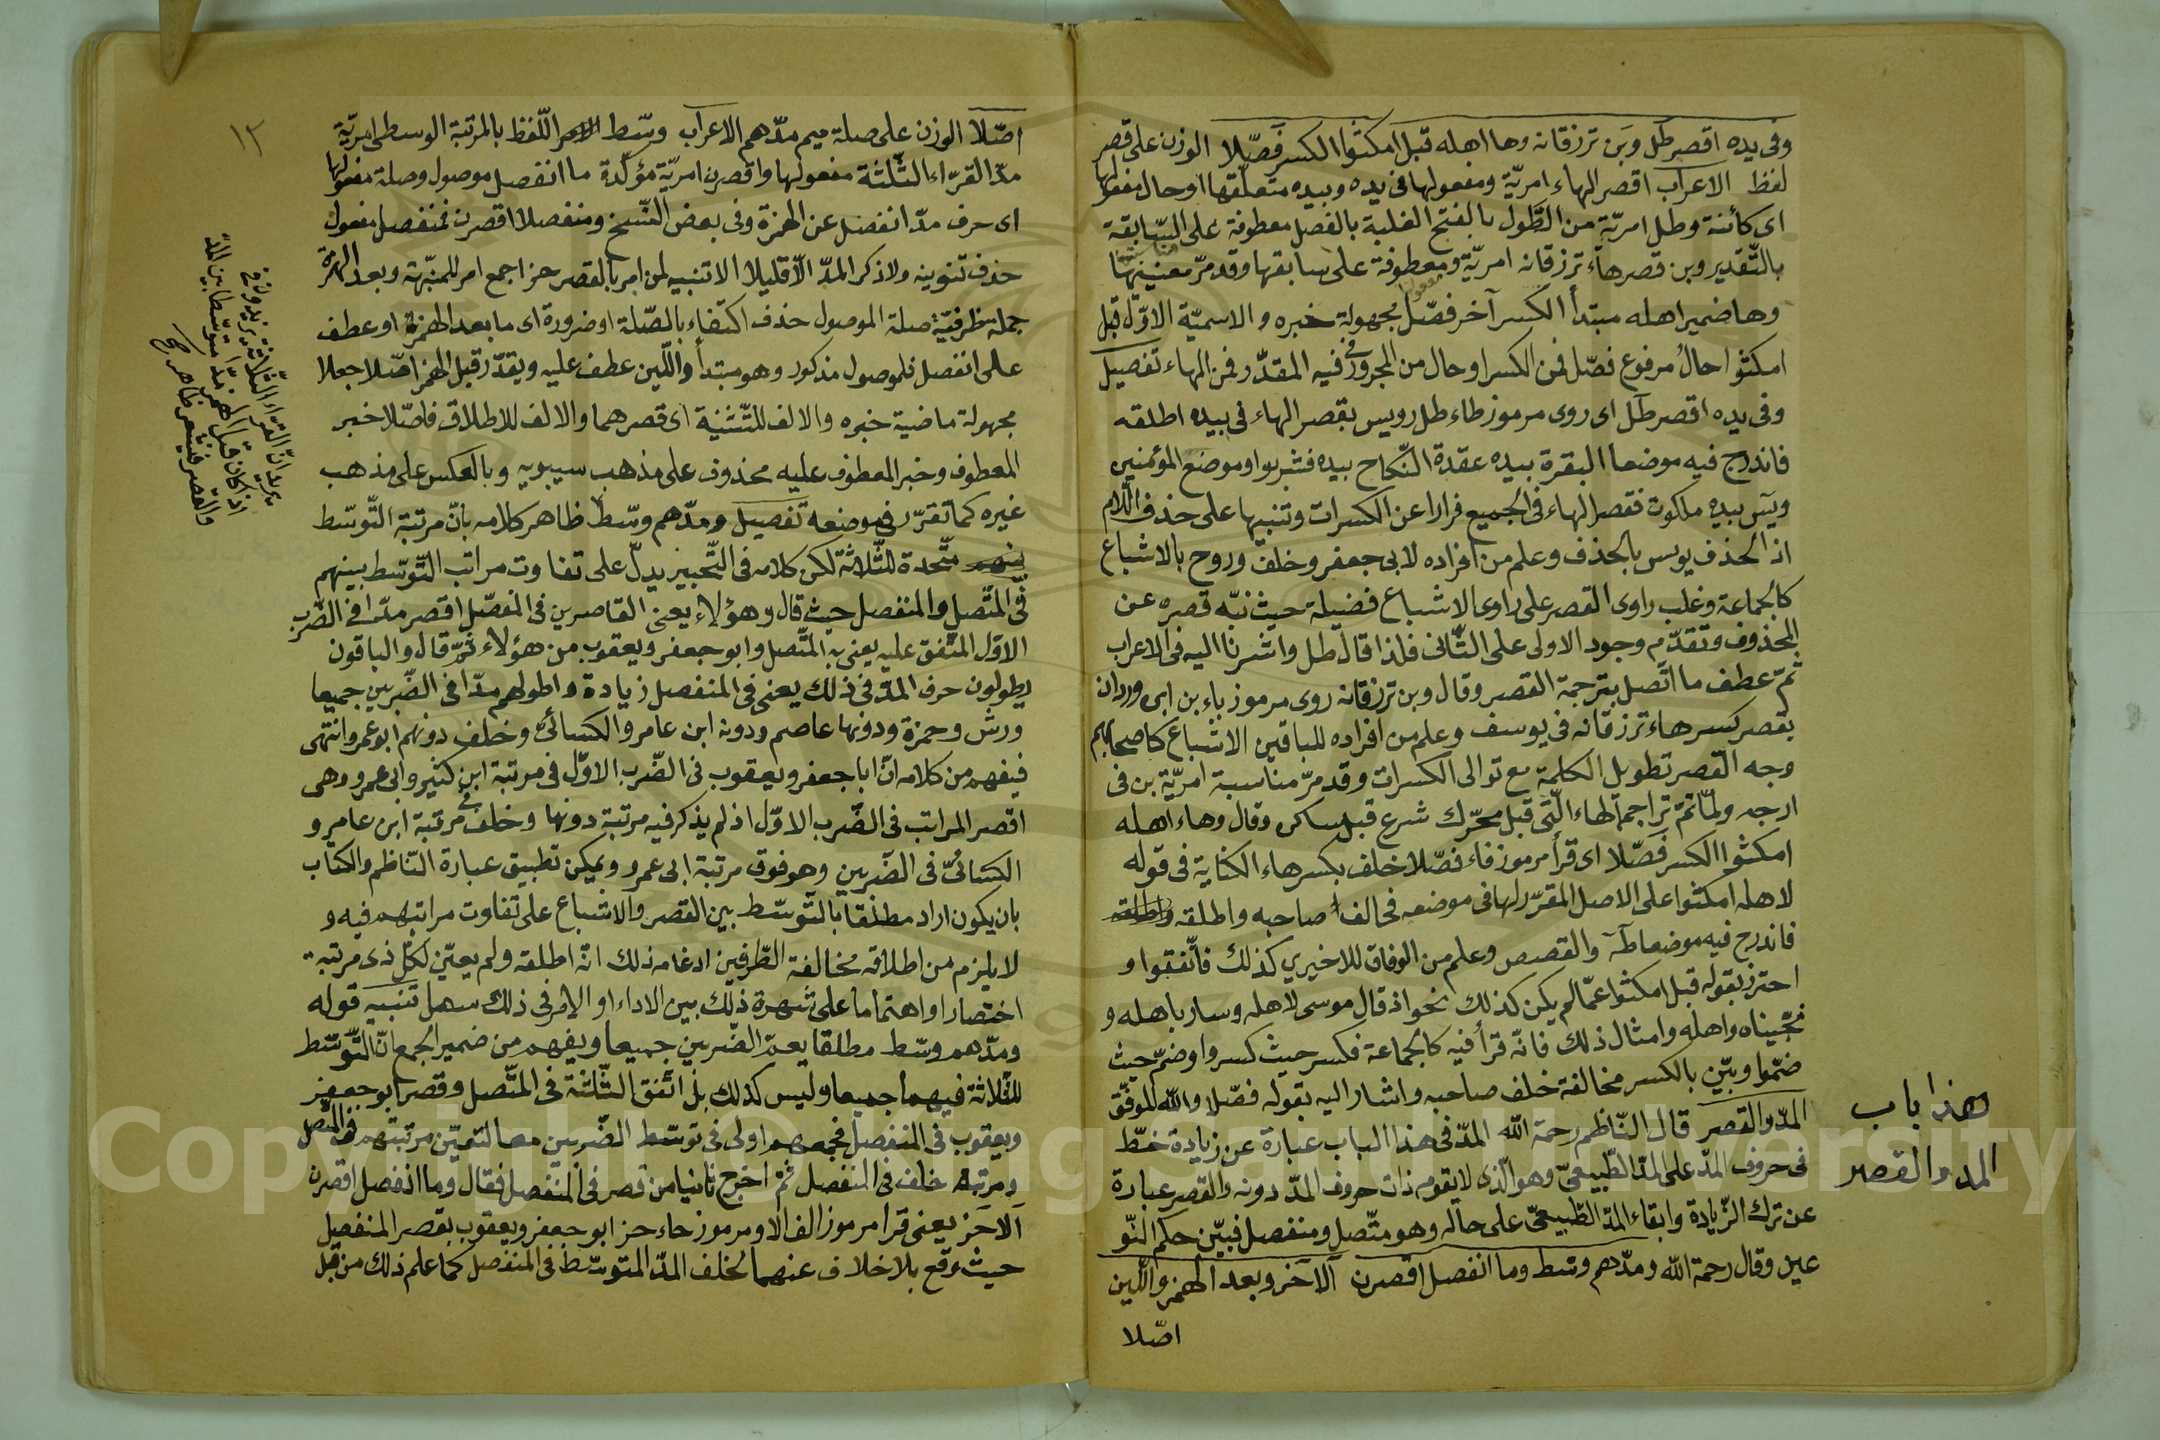 وفى يده اقصر طل وبن ترزقانه وها اهله قبل امكثوا الكسر فصّلا الوزن على قصر
لفظ الاعراب اقصر الهاء امريّة ومفعولها فى يده وبيده متعلّقها او حال مفعولها
اى كائنة وطل امريّة من الطّول بالفتح الغلبة بالفصل معطوفة على السّابقة
بالتّقدير وبن قصر هاء ترزقانه امريّة ومعطوفة على سابقها وقد مرّ معنييها
وها ضمير اهله مبتدأ الكسر آخر فصّل مجهولة خبره والاسميّة الاوّل قبل
امكثوا حال مرفوع فصّل فمن الكسر او حال من المجرور فى فيه المقدّر فمن الهاء تفصيل
وفى يده اقصر طل اى روى مرموز طاء طل رويس بقصر الهاء فى بيده اطلقه
فاندرج فيه موضعا البقرة بيده عقدة النّكاح بيده فشربوا وموضع المؤمنين
ويس بيده ملكوت فقصر الهاء فى الجميع فرارا عن الكسرات وتنبيها على حذف اللّام
اذ الحذف يونس بالحذف وعلم من افراده لابى جعفر وخلف وروح بالاشباع
كالجماعة وغلب راوى القصر على راوى الاشباع فضيلة حيث نبّه قصره عن
المحذوف وتقدّم وجود الاولى على الثّانى فلذا قال طل واشرنا اليه فى الاعراب
ثمّ عطف ما اتّصل بترجمة القصر وقال وبن ترزقانه روى مرموز باء بن ابن وردان
بقصر كسر هاء ترزقانه فى يوسف وعلم من افراده للباقين الاشباع كاصحابهم
وجه القصر تطويل الكلمة مع توالى الكسرات وقد مرّ مناسبة امريّة بن فى
ارجه ولمّا تمّ تراجم الهاء الّتى قبل محرّك شرع قبل ساكن وقال وهاء اهله
امكثوا الكسر فصّلا اى قرأ مرموز فاء فصّلا خلف بكسر هاء الكناية فى قوله
لاهله امكثوا على الاصل المقرّر لها فى موضعه فخالف صاحبه واطلقه
فاندرج فيه موضعا طه والقصص وعلم من الوفاق للاخيرين كذلك فاتّفقوا و
احترز بقوله قبل امكثوا عمّا لم يكن كذلك نحو اذ قال موسى لاهله وسار باهله و
نجّيناه واهله وامثال ذلك فانّه قرأ فيه كالجماعة فكسر حيث كسروا وضمّ حيث
ضمّوا وبيّن بالكسر مخالفة خلف صاحبه واشار اليه بقوله فصّلا والله الموفّق
هذا باب
المد والقصر
المدّ والقصر قال النّاظم رحمة الله المدّ فى هذا الباب عبارة عن زيادة خطّ
فى حروف المدّ على المدّ الطّبيعىّ وهو الّذى لا يقوم ذات حروف المدّ دونه والقصر عبارة
عن ترك الزّيادة وابقاء المدّ الطّبيعىّ على حاله وهو متّصل ومنفصل فبيّن حكم النّو
عين وقال رحمة الله ومدّهم وسّط وما انفصل اقصرن الا حز وبعد الهمز واللّين
اصّلا
١٢
اصّلا الوزن على صلة ميم مدّهم الاعراب وسّط اللّفظ بالمرتبة الوسطى امريّة
مدّ القرّاء الثّلثة مفعولها واقصرن امريّة مؤكّدة ما انفصل موصول وصلة مفعولها
اى حرف مدّ انفصل عن الهمزة وفى بعض النّسخ ومنفصلا اقصرن فمنفصل مفعول
حذف تنوينه ولا ذكر المدّ الّا قليلا الا تنبيه لمن امر بالقصر حز اجمع امر للمنبّهة وبعد الهمزة
جملة ظرفيّة صلة الموصول حذف اكتفاء بالصّلة او ضرورة اى ما بعد الهمزة او عطف
على انفصل فلموصول مذكور وهو مبتدأ واللّين عطف عليه ويقدّر قبل الهمز اصّلا جعلا
مجهولة ماضية خبره والالف للتّثنية اى قصرهما والالف للاطلاق فاصّلا خبر
المعطوف وخبر المعطوف عليه محذوف على مذهب سيبويه وبالعكس على مذهب
غيره كما تقرّر فى موضعه تفصيل ومدّهم وسّط ظاهر كلامه بانّ مرتبة التّوسّط
متّحدة للثّلاثة لكن كلامه فى التّحبير يدلّ على تفاوت مراتب التّوسّط بينهم
فى المتّصل والمنفصل حيث قال وهؤلاء يعنى القاصرين فى المنفصل اقصر مدّا فى الضّرب
الاوّل المتّفق عليه يعنى به المتّصل وابو جعفر ويعقوب من هؤلاء ثمّ قال والباقون
يطولون حرف المدّ فى ذلك يعنى فى المنفصل زيادة واطولهم مدّا فى الضّربين جميعا
ورش وحمزة ودونها عاصم ودونه ابن عامر والكسائىّ وخلف دونهم ابو عمرو انتهى
فيفهم من كلامه انّ ابا جعفر ويعقوب فى الضّرب الاوّل فى مرتبة ابن كثير وابى عمرو وهى
اقصر المراتب فى الضّرب الاوّل اذ لم يذكر فيه مرتبة دونها وخلف فى مرتبة ابن عامر و
الكسائىّ فى الضّربين وهو فوق مرتبة ابى عمرو ويمكن تطبيق عبارة النّاظم والكتاب
بان يكون اراد مطلقا بالتّوسّط بين القصر والاشباع على تفاوت مراتبهم فيه و
لا يلزم من اطلاقه مخالفة الطّرفين ادغامه ذلك انّه اطلقه ولم يعيّن لكلّ ذى مرتبة
اختصارا واهتماما على شهرة ذلك بين الاداء او الامر فى ذلك سهل تنبيه قوله
ومدّهم وسّط مطلقا يعمّ الضّربين جميعا ويفهم من ضمير الجمع انّ التّوسّط
للثّلاثة فيهما جميعا وليس كذلك بل اتّفق الثّلثة فى المتّصل وقصر ابو جعفر
ويعقوب فى المنفصل فجمعهم اولى فى توسّط الضّربين معا لتعيّن مرتبتهم فى المتّصل
ومرتبة خلف فى المنفصل ثمّ اخرج ثانيا من قصر فى المنفصل فقال وما انفصل اقصرن
الا حز يعنى قرأ مرموز الف الا ومرموز حاء حز ابو جعفر ويعقوب بقصر المنفصل
حيث وقع بلا خلاف عنهما لخلف المدّ المتوسّط فى المنفصل كما علم ذلك من قبل
Copyright © King Saud University